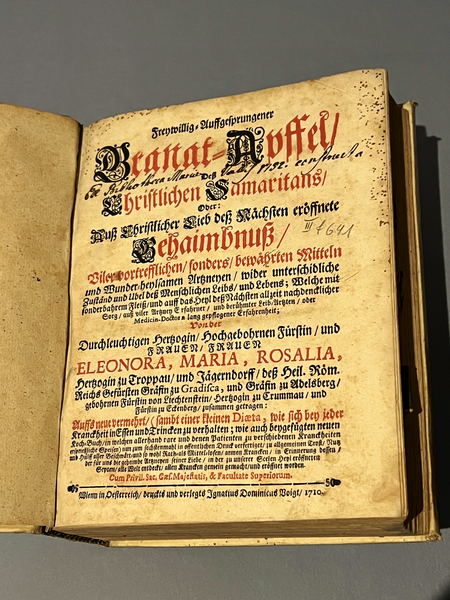 Freywillig-Auffgesprungener
Granat-Apffel/
Deß
Christlichen Samaritans/
Oder:
Auß Christlicher Lieb deß Nächsten eröffnete
Gehaimbnuß/
Viler vortrefflichen/ sonders/ bewährten Mitteln
und Wunder-heylsamen Artzneyen/ wider unterschidliche
Zuständ und Ubel deß Menschlichen Leibs/ und Lebens; Welche mit
sonderbahrem Fleiß/ und auff das Heyl deß Nächsten allzeit nachdencklicher
Sorg/ auß viler Artzney Erfahrner/ und berühmter Leib-Artzten/ oder
Medicin-Doctorn lang gepflogener Erfahrenheit;
Von der
Durchleuchtigen Hertzogin/ Hochgebohrnen Fürstin/ und
FRAUEN/ FRAUEN
ELEONORA, MARIA, ROSALIA,
Hertzogin zu Troppau/ und Jägerndorff/ deß Heil. Röm.
Reichs Gefürsten Gräfin zu Gradisca, und Gräfin zu Adelsberg/
gebohrnen Fürstin von Liechtenstein/ Hertzogin zu Crummau/ und
Fürstin zu Eckenberg/ zusammen getragen:
Auffs neue vermehrt/ sambt einer kleinen Diæta, wie sich bey jeder
Kranckheit in Essen und Trincken zu verhalten; wie auch beygefügten neuen
Koch-Buch/ in welchen allerhand rare und denen Patienten zu verschiedenen Kranckheiten
ersprießliche Speisen/ nun zum sechstenmahl in öffentlichen Druck verfertiget/ zu allgemeinen Trost/ Nutz
und Hülff aller Beschwärten/ und so wohl Rath-als Mittel-losen/ armen Krancken/ in Erinnerung dessen/
der für uns die geheimbe Artzneyen seiner Liebe/ in der zu unserer Seelen Heyl eröffneten
Seyten/ aller Welt entdeckt/ allen Krancken gemein gemacht/ und eröffnet worden.
Cum Privil. Sac. Cæs. Majestatis, & Facultate Superiorum.
Wienn in Oesterreich/ druckts und verlegts Ignatius Dominicus Voigt/ 1710.